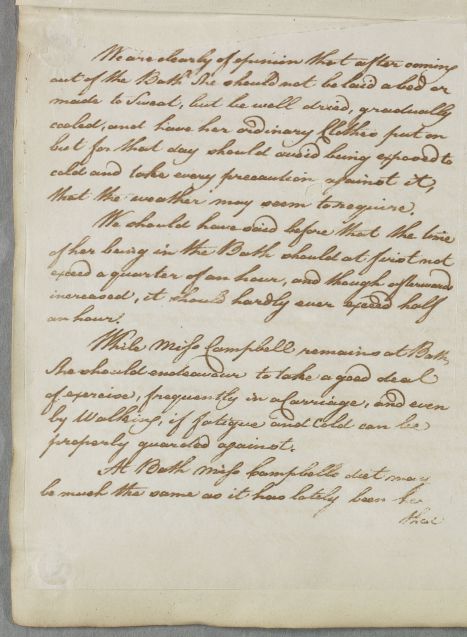 We are clearly of opinion that after coming
out of the Bath She should not be laid a bed or
made to Sweat, but be well dried, gradually
cooled, and have her ordinary Clothes put on
but for that day should avoid being exposed to
cold and take every precaution against it,
that the weather may seem to require.
We should have said before that the time
of her being in the Bath should at first not
exceed a quarter of an hour, and though afterwards
increased, it should hardly ever exceed half
an hour.
While Miss Campbell remains at Bath,
She should endeavour to take a good deal
of exercise, frequently in a Carriage, and even
by Walking, if fatigue and cold can be
properly guarded against.
At Bath Miss Campbells diet may
be much the same as it has lately been